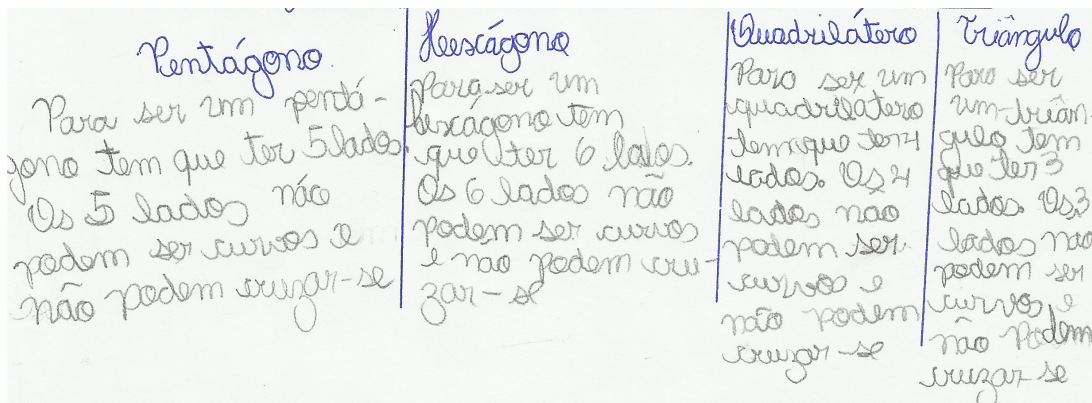 Pentágono
Para ser um pentá-
gono tem que ter 5 lados.
Os 5 lados não
podem ser curvos e
não podem cruzar-se
Hescágono
Para ser um
hexágono tem
que ter 6 lados.
Os 6 lados não
podem ser curvos
e não podem cru-
zar-se
Quadrilátero
Para ser um
quadrilátero
tem que ter 4
lados. Os 4
lados não
podem ser
curvos e
não podem
cruzar-se
Triângulo
Para ser
um triân-
gulo tem
que ter 3
lados. Os 3
lados não
podem ser
curvos e
não podem
cruzar-se